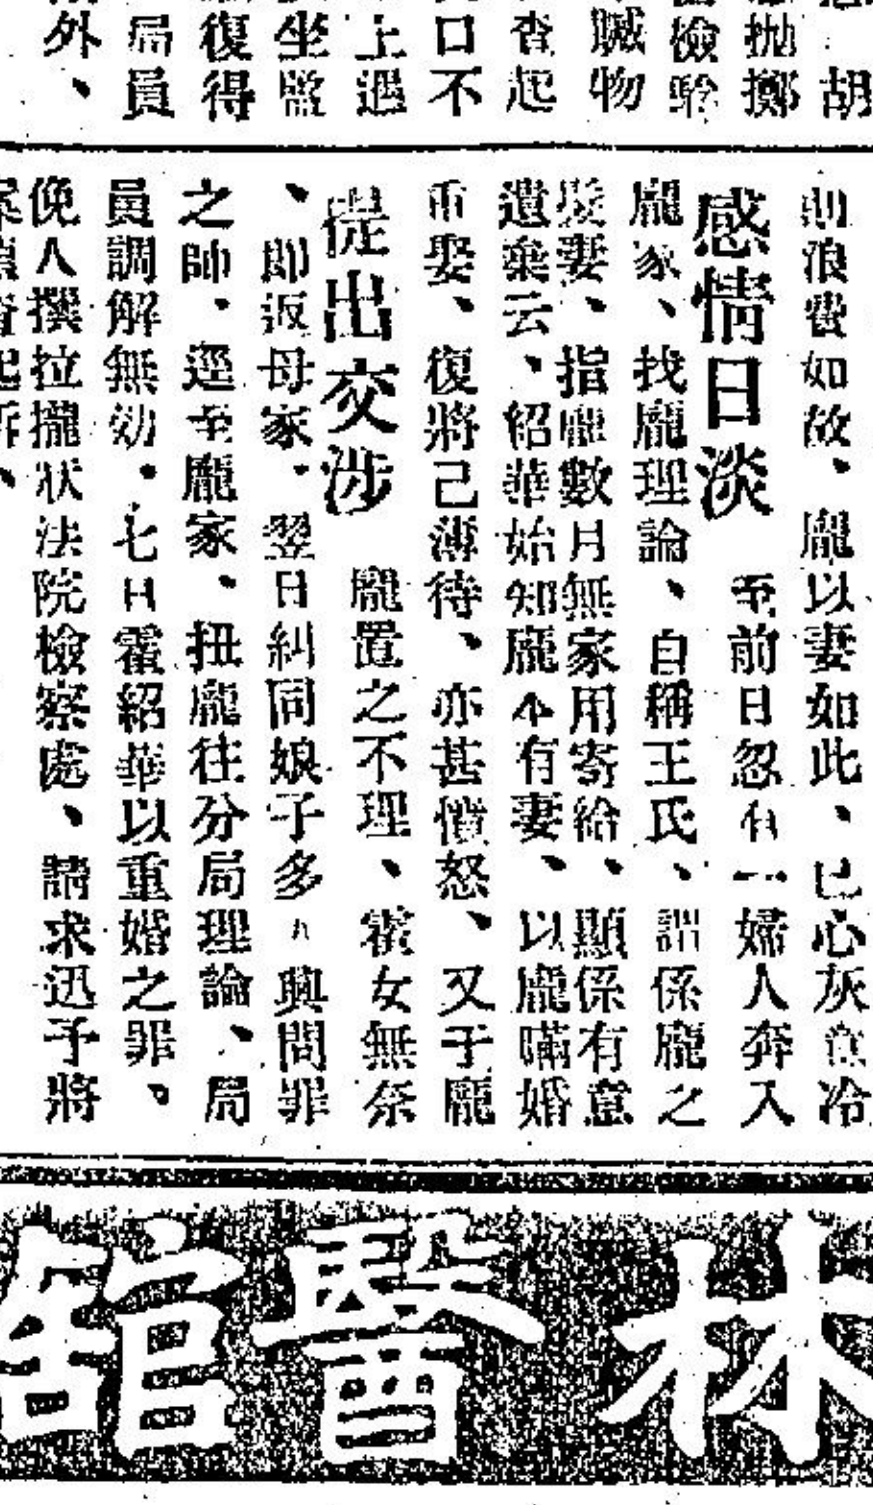 胡
抛擲
檢驗
贓物
查起
口不
上過
坐監
復得
局員
外、
則浪費如故、龐以妻如此、已心灰意冷
感情日淡 至前日忽有一婦人奔入
龐家、找龐理論、自稱王氏、謂係龐之
髮妻、指龐數月無家用寄給、顯係有意
遺棄云、紹華始知龐本有妻、以龐瞞婚
重娶、復將己薄待、亦甚憤怒、又于龐
提出交涉 龐置之不理、霍女無奈
、即返母家、翌日糾同娘子多人興問罪
之師、逕至龐家、扭龐往分局理論、局
員調解無効、七日霍紹華以重婚之罪、
俛人撰拉攏狀法院檢察處、請求迅予將
起訴、
林醫舘